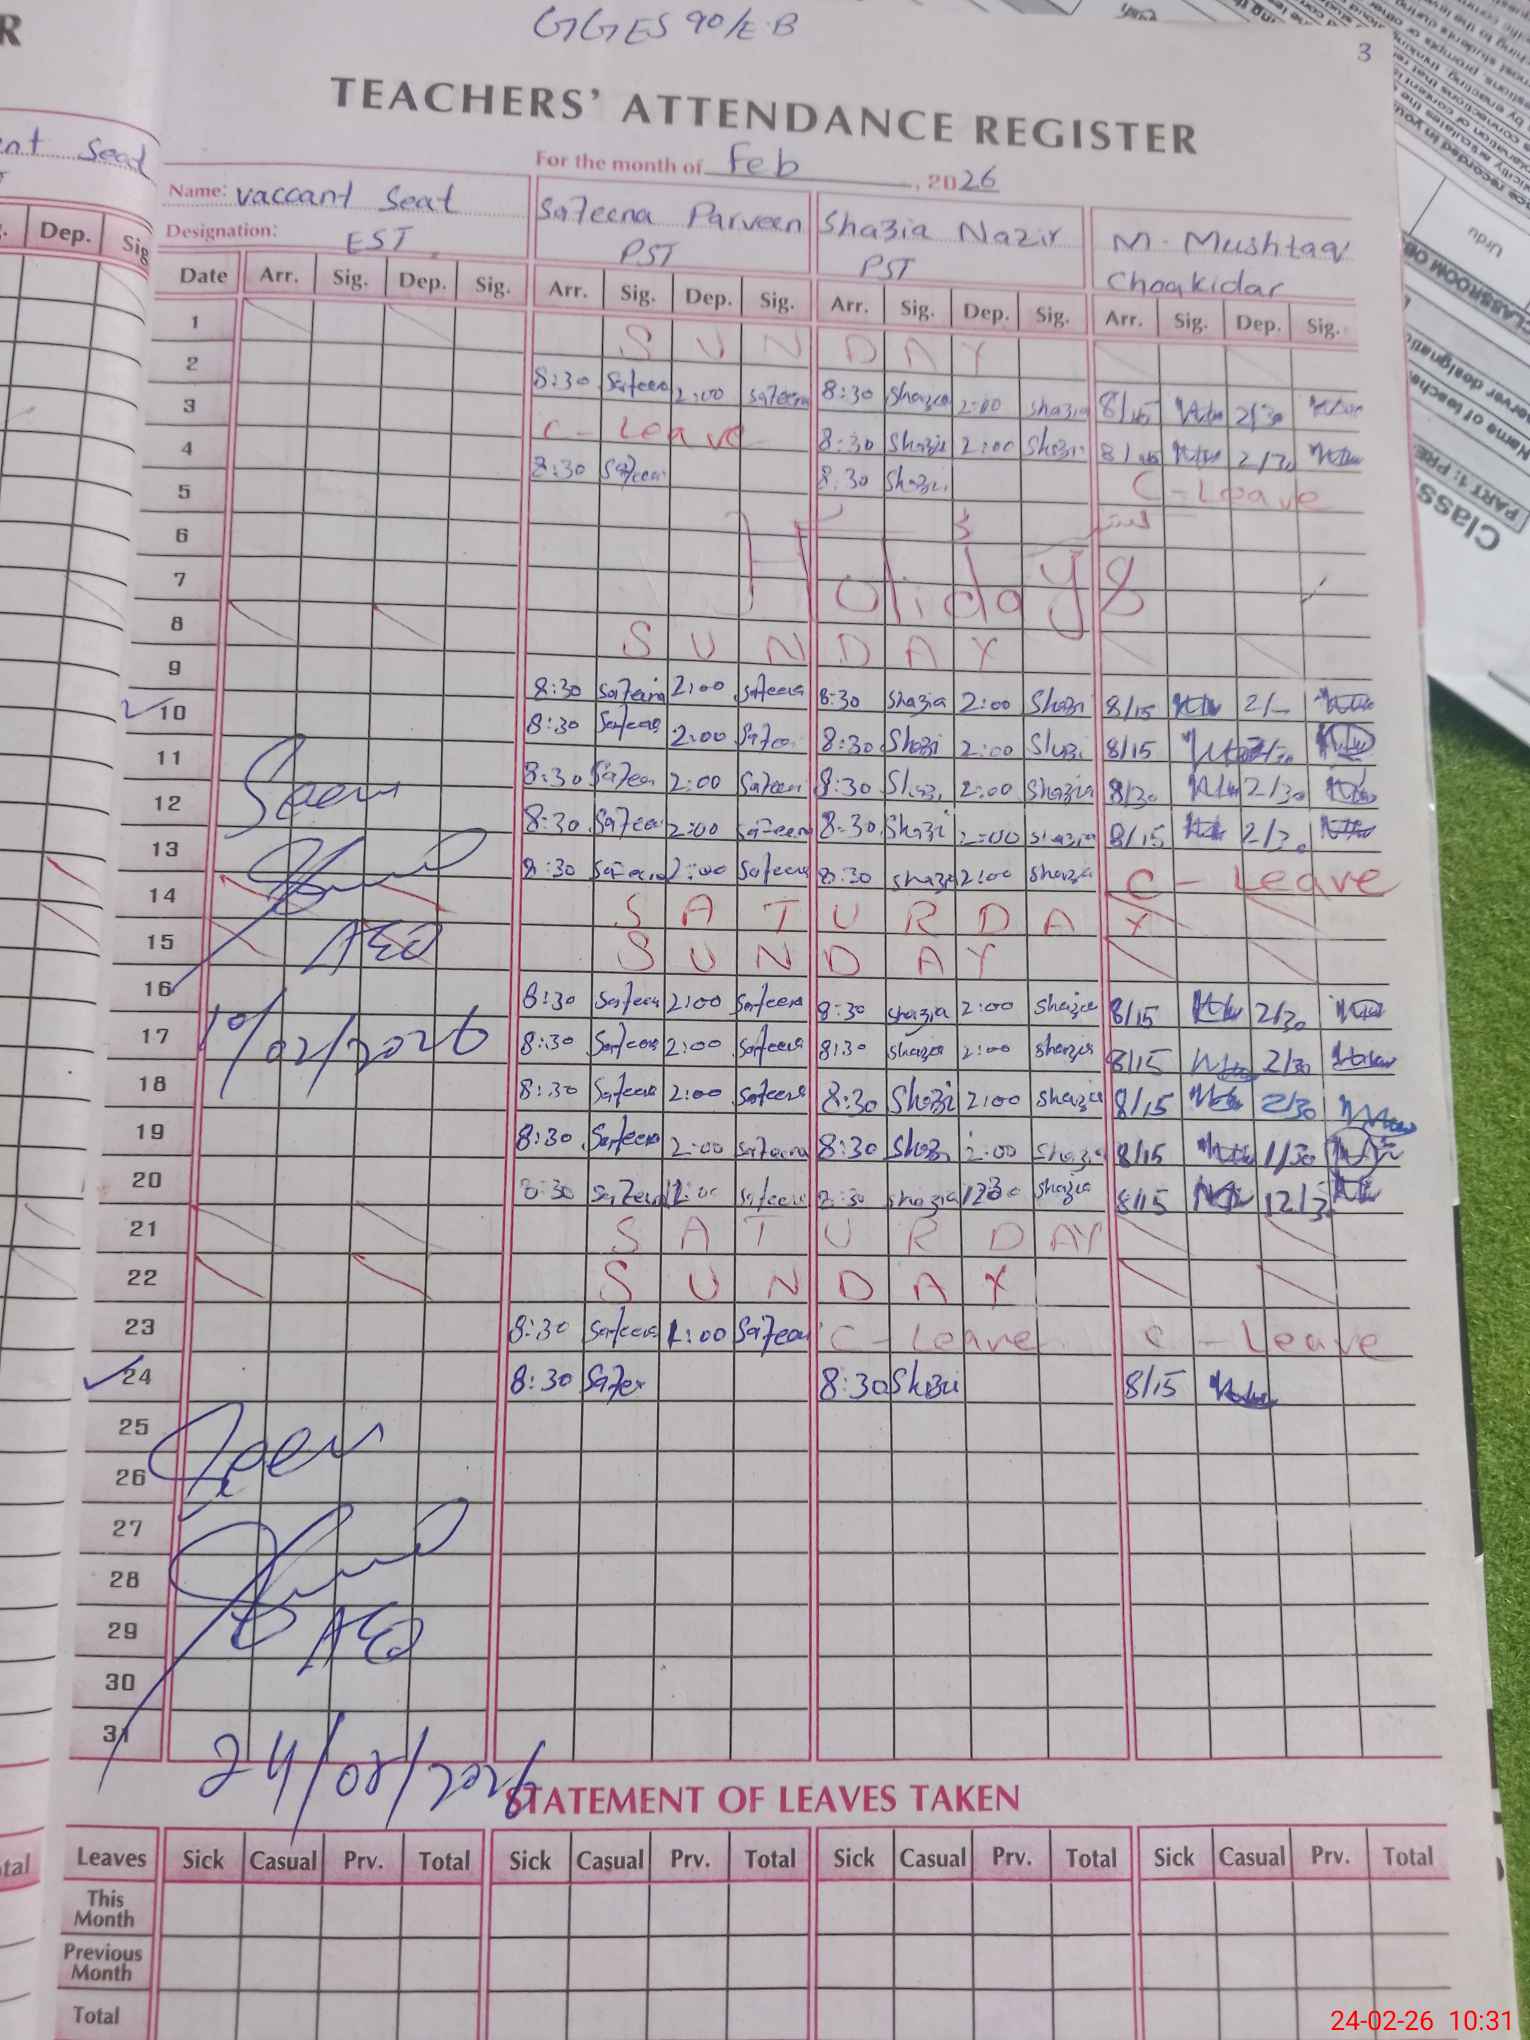 GGES 90/E.B
3
TEACHERS' ATTENDANCE REGISTER
For the month of Feb, 2026
Name: vaccant Seat Safeena Parveen Shazia Nazir M. Mushtaq
Designation: EST PST PST Choakidar
Date Arr. Sig. Dep. Sig. Arr. Sig. Dep. Sig. Arr. Sig. Dep. Sig. Arr. Sig. Dep. Sig.
1 SUNDAY
2 8:30 Safeena 2:00 Safeena 8:30 Shazia 2:00 Shazia 8/15 2/30
3 C-Leave 8:30 Shazia 2:00 Shazia 8/15 2/30
4 8:30 Safeena 8:30 Shazia C-Leave
5
6
7 Holidays
8 SUNDAY
9 8:30 Safeena 2:00 Safeena 8:30 Shazia 2:00 Shazi 8/15
10 8:30 Safeena 2:00 Safeen 8:30 Shazi 2:00 Shazi 8/15 2/30
11 8:30 Safeen 2:00 Safeen 8:30 Shazi 2:00 Shazia 8/30 2/30
12 8:30 Safeena 2:00 Safeena 8:30 Shazi 2:00 Shazia 8/15 2/30
13 8:30 Safeena 2:00 Safeena 8:30 Shazia 2:00 Shazia C-Leave
14 SATURDAY
15 SUNDAY
Seen
AEO
10/02/2026
16 8:30 Safeena 2:00 Safeena 8:30 Shazia 2:00 Shazia 8/15 2/30
17 8:30 Safeena 2:00 Safeena 8:30 Shazia 2:00 Shazia 8/15 2/30
18 8:30 Safeena 2:00 Safeena 8:30 Shazi 2:00 Shazia 8/15 2/30
19 8:30 Safeena 2:00 Safeena 8:30 Shazi 2:00 Shazia 8/15 1/30
20 8:30 Safeena Safeena 8:30 Shazia Shazia 8/15 12/3
21 SATURDAY
22 SUNDAY
23 8:30 Safeena 1:00 Safeena C-Leave C-Leave
24 8:30 Safee 8:30 Shazi 8/15
25
26
27
28
29
30
31
Seen
AEO
24/02/2026
STATEMENT OF LEAVES TAKEN
Leaves Sick Casual Prv. Total Sick Casual Prv. Total Sick Casual Prv. Total Sick Casual Prv. Total
This Month
Previous Month
Total
24-02-26 10:31